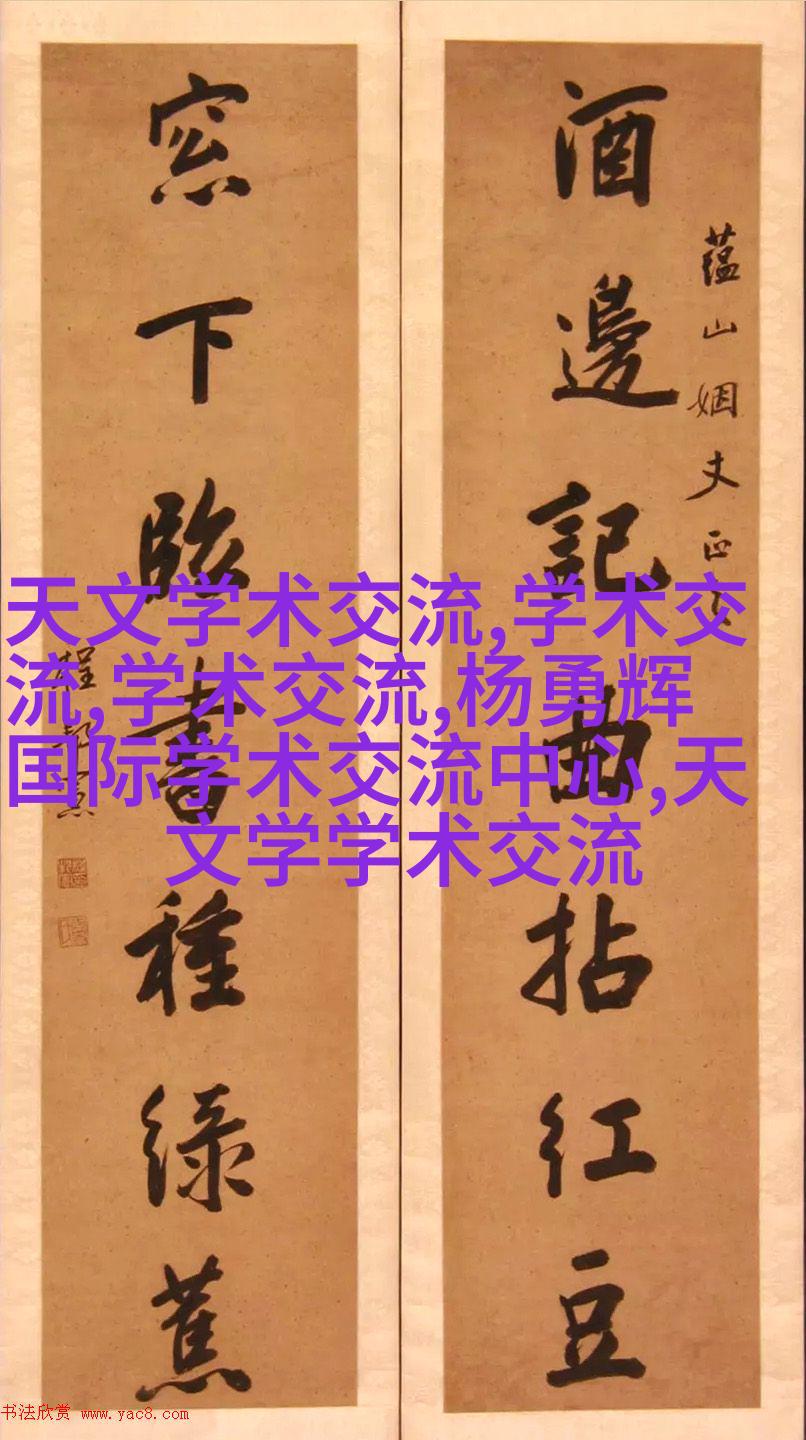 酒邊記曲拈紅豆
蘊山姻丈正之
窓下臨書種綠蕉
程
天文学术交流,学术交
流,学术交流,杨勇辉
国际学术交流中心,天
文学学术交流
书法欣赏 www.yac8.com